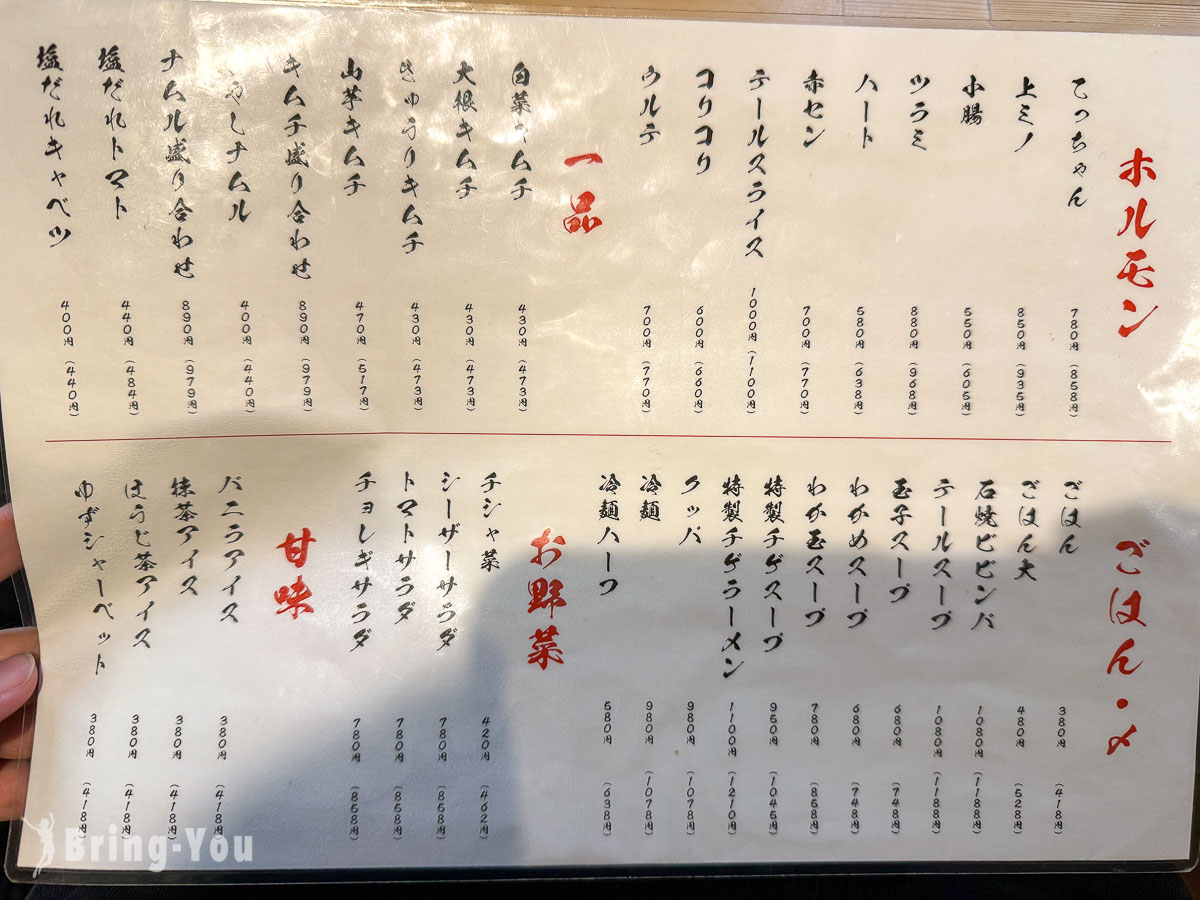 ホルモン
てっちゃん 780円 (858円)
上ミノ 850円 (935円)
小腸 550円 (605円)
ツラミ 880円 (968円)
ハート 580円 (638円)
赤セン 700円 (770円)
テールスライス 1000円 (1100円)
コリコリ 600円 (660円)
ウルテ 700円 (770円)
一品
白菜キムチ 430円 (473円)
大根キムチ 430円 (473円)
きゅうりキムチ 430円 (473円)
山芋キムチ 470円 (517円)
キムチ盛り合わせ 890円 (979円)
もやしナムル 400円 (440円)
ナムル盛り合わせ 890円 (979円)
塩だれトマト 440円 (484円)
塩だれキャベツ 400円 (440円)
ごはん・〆
ごはん 380円 (418円)
ごはん大 480円 (528円)
石焼ビビンバ 1080円 (1188円)
テールスープ 1080円 (1188円)
玉子スープ 680円 (748円)
わかめスープ 680円 (748円)
わか玉スープ 780円 (858円)
特製チゲスープ 950円 (1045円)
特製チゲラーメン 1100円 (1210円)
クッパ 980円 (1078円)
冷麺 980円 (1078円)
冷麺ハーフ 580円 (638円)
お野菜
チシャ菜 420円 (462円)
シーザーサラダ 780円 (858円)
トマトサラダ 780円 (858円)
チョレギサラダ 780円 (858円)
甘味
バニラアイス 380円 (418円)
抹茶アイス 380円 (418円)
ほうじ茶アイス 380円 (418円)
ゆずシャーベット 380円 (418円)
Bring-You